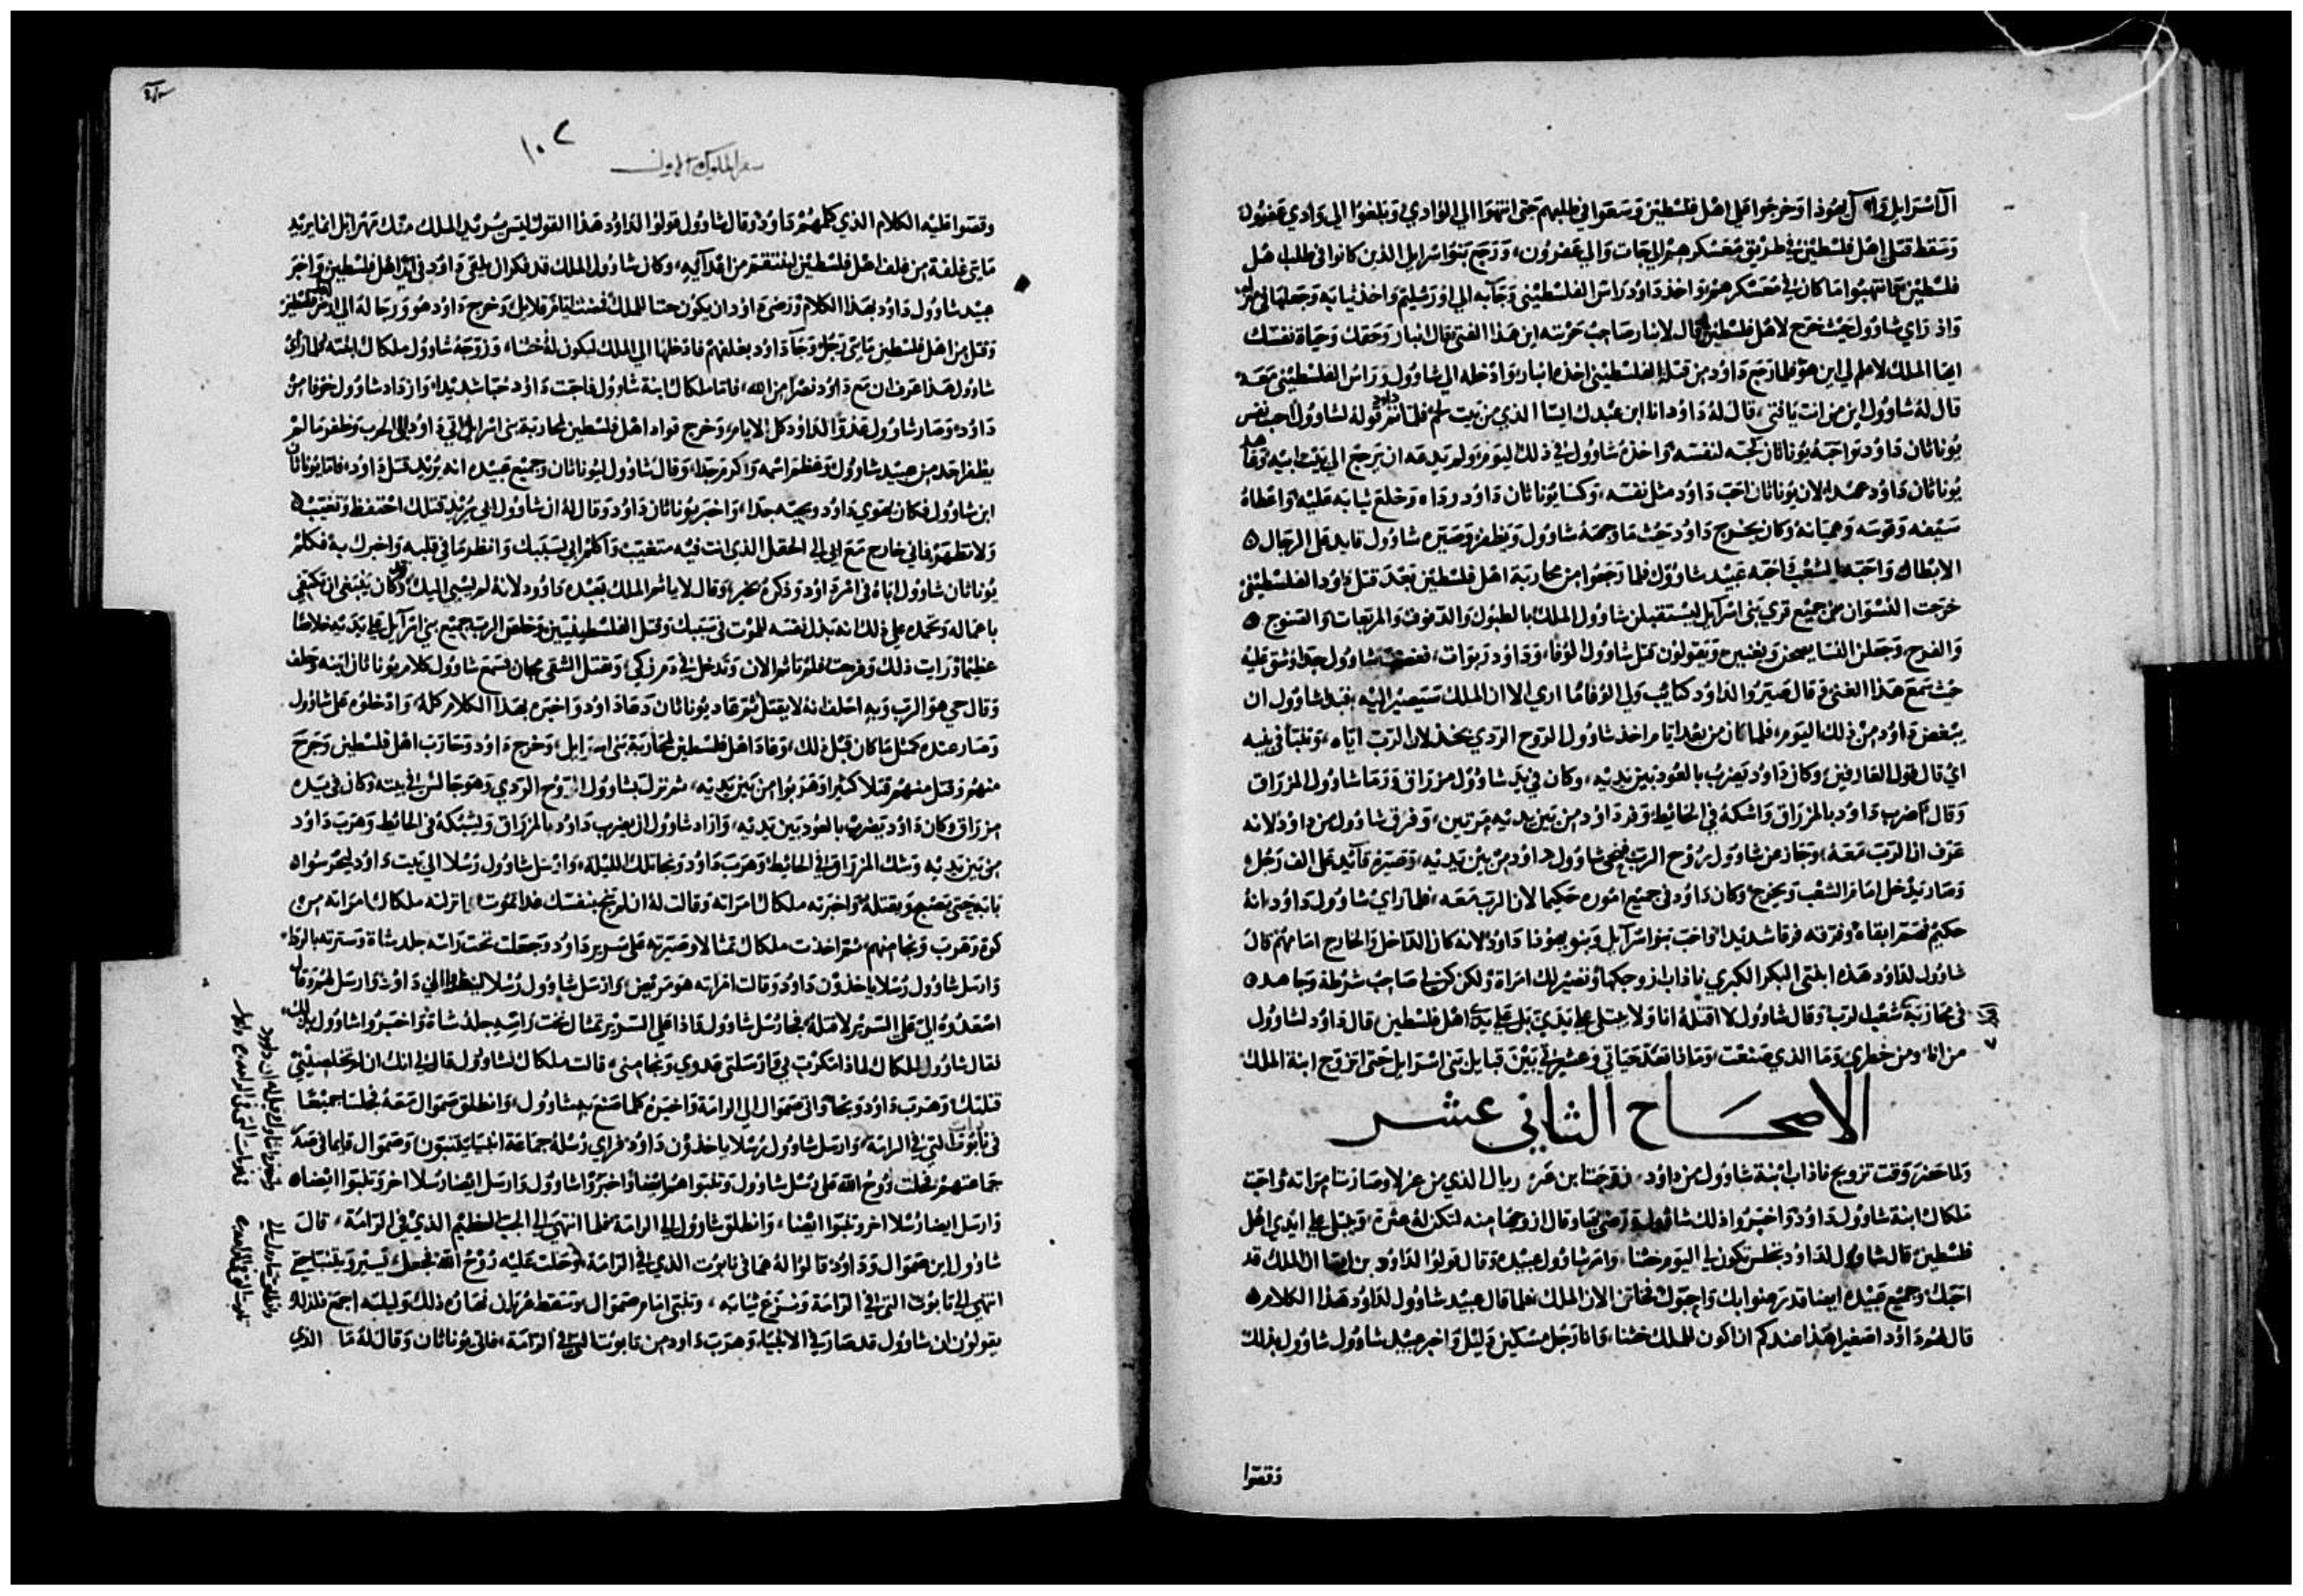 آل اسرايل وآل يهوذا وخرجوا علي اهل فلسطين وسعوا في طلبهم حتى انتهوا الي الوادي وبلغوا الي وادي عفرون
وسقط قتلي اهل فلسطين في طريق معسكرهم الي جات والي عفرون، ورجع بنوا اسرايل الذين كانوا في طلب اهل
فلسطين فانتهبوا ما كان في معسكرهم واخذ داود راس الفلسطيني وجآ به الي اورشليم واخذ ثيابه وجعلها في
واذ راي شاوول حيث خرج لاهل فلسطين قال لانبار صاحب حربته ابن هذا الفتى قال انبار وحقك وحياة نفسك
ايها الملك لا علم لي ابن من هو فلما رجع داود من قتله الفلسطيني اخذه انبار وادخله الي شاوول وراس الفلسطيني معه
قال له شاوول ابن من انت يا فتى، قال له داود انا ابن عبدك ايسا الذي من بيت لحم فلما تم داود قوله لشاوول احب نفس
يوناثان داود واحبه يوناثان كمحبته لنفسه واخذه شاوول في ذلك اليوم ولم يدعه ان يرجع الي بيت ابيه وعاهد
يوناثان داود عهدا لان يوناثان احب داود مثل نفسه، وكسا يوناثان داود رداه وخلع ثيابه عليه واعطاه
سيفه وقوسه وهميانه وكان يخرج داود حيث ما وجهه شاوول ويظفر وصيره شاوول قايد علي الرجال
الابطال واحبه الشعب واحبه عبيد شاوول فلما رجعوا من محاربة اهل فلسطين بعد قتل داود الفلسطيني
خرجت النسوان من جميع قري بني اسرآيل ليستقبلن شاوول الملك بالطبول والدفوف والمربعات والصنوج
والفرح وجعلن النسا يضحكن ويغنين ويقولون قتل شاوول الوفا، وداود ربوات، فغضب شاوول جدا وشق عليه
حيث سمع هذا الغنى وقال صيروا لداود كتايب ولي الوفا ما اري الا ان الملك سيصير اليه فبدا شاوول ان
يبغض داود من ذلك اليوم، فلما كان من بعد ايام اخذ شاوول الروح الردي بخذلان الرب اياه، وتنبا في بيته
اي قال قول العارفين، وكان داود يضرب بالعود بين يديه، وكان في يد شاوول مزراق ورما شاوول المزراق
وقال اضرب داود بالمزراق واشكه في الحائيط وفر داود من بين يديه مرتين، وفرق شاوول من داود لانه
عرف ان الرب معه، وجاز عن شاوول روح الرب فنحى شاوول داود من بين يديه، وصيره قآيد علي الف رجل
وصار يدخل امام الشعب ويخرج وكان داود في جميع اموره حكيما لان الرب معه، فلما راي شاوول داود انه
حكيم فصر ابقاه وفرقه فرقا شديدا واحب بنوا اسرآيل وبنو يهوذا داود لانه كان الداخل والخارج امامهم قال
شاوول لداود هذه ابنتي البكر الكبري ناداب ازوجكها وتصير لك امراة ولكن كن لي صاحب شرطة وجاهد
في محاربة شعب الرب وقال شاوول لا اقتله انا ولا يبتلي علي يدي بل علي يدي اهل فلسطين قال داود لشاوول
من انا ومن خطري وما الذي صنعت وما انا تعد حياتي وعشيرتي بين قبايل بني اسرايل حتى اتزوج ابنة الملك
الاصحاح الثاني عشر
ولما حضر وقت تزويج ناداب ابنة شاوول من داود، زوجتا بن ريال الذي من عزلا وصارتا امراته واحبت
ملكال ابنة شاوول داود واخبروا ذلك شاوول ورضي بها وقال ازوجها منه لتكن له عثرة، ويبتلي علي ايدي اهل
فلسطين قال شاوول لداود تكون لي اليوم ختنا، وامر شاوول عبيده وقال قولوا لداود ان الملك قد
احبك وجميع عبيده ايضا قد رضوا بك واحبوك فخاتن الان الملك فلما قال عبيد شاوول لداود هذا الكلام
قال لهم داود اصغير هذا عندكم ان اكون للملك ختنا، وانا رجل مسكين ذليل واخبر عبيد شاوول شاوول بذلك
وقصوا
سفر الملوك الاول
١٠٢
وقصوا عليه الكلام الذي كلمهم داود وقال شاوول قولوا لداود هذا القول ليس يريد الملك منك مهرا بل انما يريد
مايتي غلفة من غلف اهل فلسطين لينتقم من اعدآيه، وكان شاوول الملك قد فكر ان يلقى داود في ايدي اهل فلسطين واخبر
عبيد شاوول داود بهذا الكلام ورضي داود ان يكون ختنا للملك فمضت ايام قلايل وخرج داود هو ورجاله الي اهل فلسطين
وقتل من اهل فلسطين مايتي رجل وجآ داود بغلفهم فادخلها الي الملك ليكون له ختنا، وزوجه شاوول ملكال ابنته فلما راي
شاوول هذا عرف ان مع داود نصرا من الله، فاما ملكال ابنة شاوول فاحبت داود حبا شديدا، وازداد شاوول خوفا من
داود، وصار شاوول عدوا لداود كل الايام، وخرج قواد اهل فلسطين لمحاربة بني اسرايل داود الي الحرب وظفر ما لم
يظفر احد من عبيد شاوول وعظم اسمه واكرم جدا، وقال شاوول ليوناثان وجميع عبيده انه يريد قتل داود، فاما يوناثان
ابن شاوول فكان يهوي داود ويحبه جدا، واخبر يوناثان داود وقال له ان شاوول ابي يريد قتلك احتفظ وتغيب
ولا تظهر فاني خارج مع ابي الي الحقل الذي انت فيه متغيب واكلم ابي بسببك وانظر ما في قلبه واخبرك به فكلم
يوناثان شاوول اباه في امر داود وذكره بخير وقال لا ياثم الملك بعبده داود لانه لم يسي اليك وقد كان ينبغي ان يكتفي
باعماله وتحمده علي ذلك انه بذل نفسه للموت في سببك وقتل الفلسطينيين وخلص الرب جميع بني اسرآيل علي يديه خلاصا
عظيما ورايت ذلك وفرحت فلم تاثم الان وتدخل في دم زكي، وتقتل التقي مجان فسمع شاوول كلام يوناثان ابنه وحلف
وقال حي هو الرب وبه احلف انه لا يقتل ثم عاد يوناثان ودعا داود واخبره بهذا الكلام كله، وادخلوه علي شاوول
وصار عنده كمثل ما كان قبل ذلك، وعاد اهل فلسطين لمحاربة بني اسرايل، وخرج داود وحارب اهل فلسطين وجرح
منهم وقتل منهم قتلا كثيرا وهربوا من بين يديه، ثم نزلت بشاوول الروح الردي وهو جالس في بيته وكان في يده
مزراق وكان داود يضرب بالعود بين يديه، واراد شاوول ان يضرب داود بالمزراق ويشبكه في الحائيط وهرب داود
من بين يديه وشك المزراق في الحائيط، وهرب داود ونجا تلك الليلة، وارسل شاوول رسلا الي بيت داود ليحرسوا
بابه حتى يصبح ويقتله واخبرته ملكال امراته وقالت له ان لم تنج بنفسك غدا تموت، انزلته ملكال امراته من
كوة وهرب ونجا منهم، ثم اخذت ملكال تمثالا وصيرته علي سرير داود وجعلت تحت راسه جلد شاة وسترته بالردا
وارسل شاوول رسلا ياخذون داود وقالت امراته هو مريض، وارسل شاوول رسلا لينظروا الي داود، وارسل لهم وقال
اصعدوه الي علي السرير لاقتله فجا رسل شاوول فاذا علي السرير تمثال تحت راسه جلد شاة واخبروا شاوول بذلك
فقال شاوول لملكال لماذا مكرت بي وارسلتي عدوي ونجا مني، قالت ملكال لشاوول قال لي انك ان لم تخلصيني
قتلتك وهرب داود ونجا واتى صموال الي الرامة واخبره كلما صنع به شاوول، وانطلق صموال معه فجلسا جميعا
في نابوت التي في الرامة، وارسل شاوول رسلا ياخذون داود، فراي رسله جماعة انبيا يتنبون وصموال قايما في
جماعتهم فحلت روح الله علي رسل شاوول وتنبوا هم ايضا واخبروا شاوول وارسل ايضا رسلا اخر وتنبوا ايضا
وارسل ايضا رسلا اخر وتنبوا ايضا، وانطلق شاوول الي الرامة فلما انتهى الي الجب العظيم الذي في الرامة، قال
شاوول اين صموال وداود، قالوا له هما في نابوت الذي في الرامة وحلت عليه روح الله فجعل يسير ويتنبا حتى
انتهى الي نابوت التي في الرامة ونزع ثيابه، وتنبى امام صموال وسقط عريان نهاره ذلك وليلته اجمع فلذلك
يقولون ان شاوول قد صار في الانبيا، وهرب داود من نابوت التي في الرامة، فاتى يوناثان وقال له ما الذي